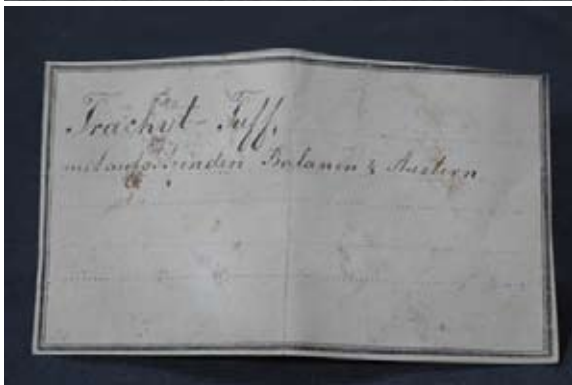 Trachyt-Tuff,
mit aufsitzenden Balanen & Austern